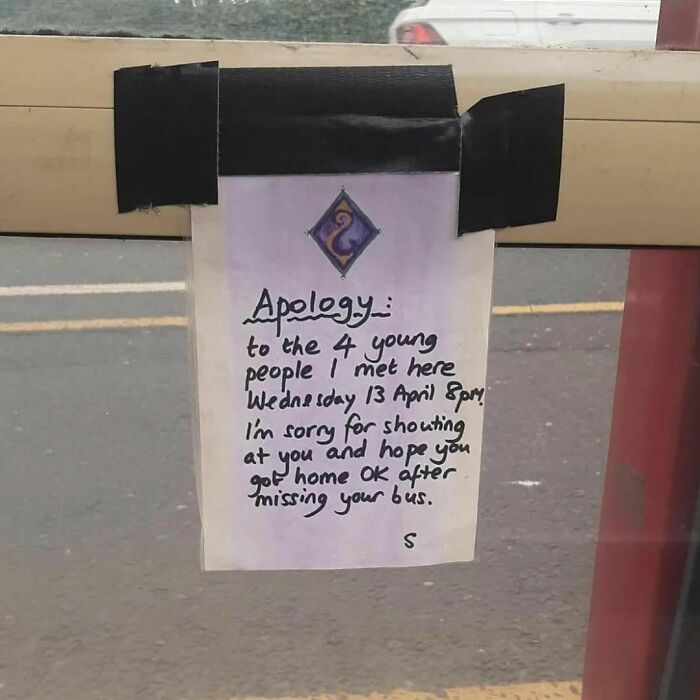 Apology:
to the 4 young
people I met here
Wednesday 13 April 8pm.
I'm sorry for shouting
at you and hope you
got home OK after
missing your bus.
S